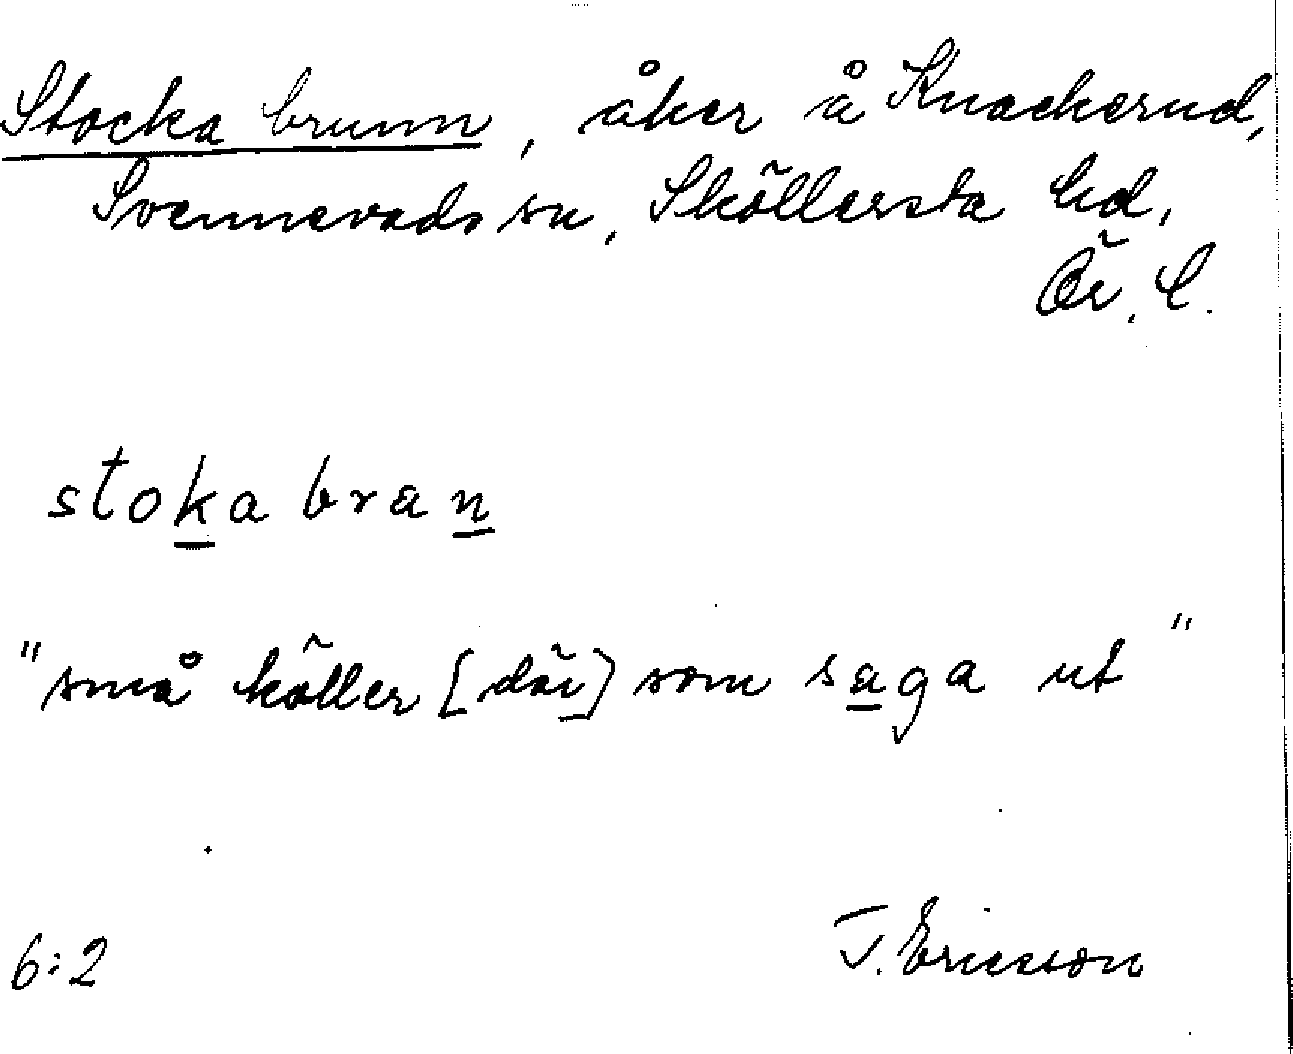 Stocka brunn, åker å Knackerud,
Svennevads sn, Sköllersta hd,
Ör. l.
stoka bran
"små käller [där] som saga ut"
6:2 J. Ericsson